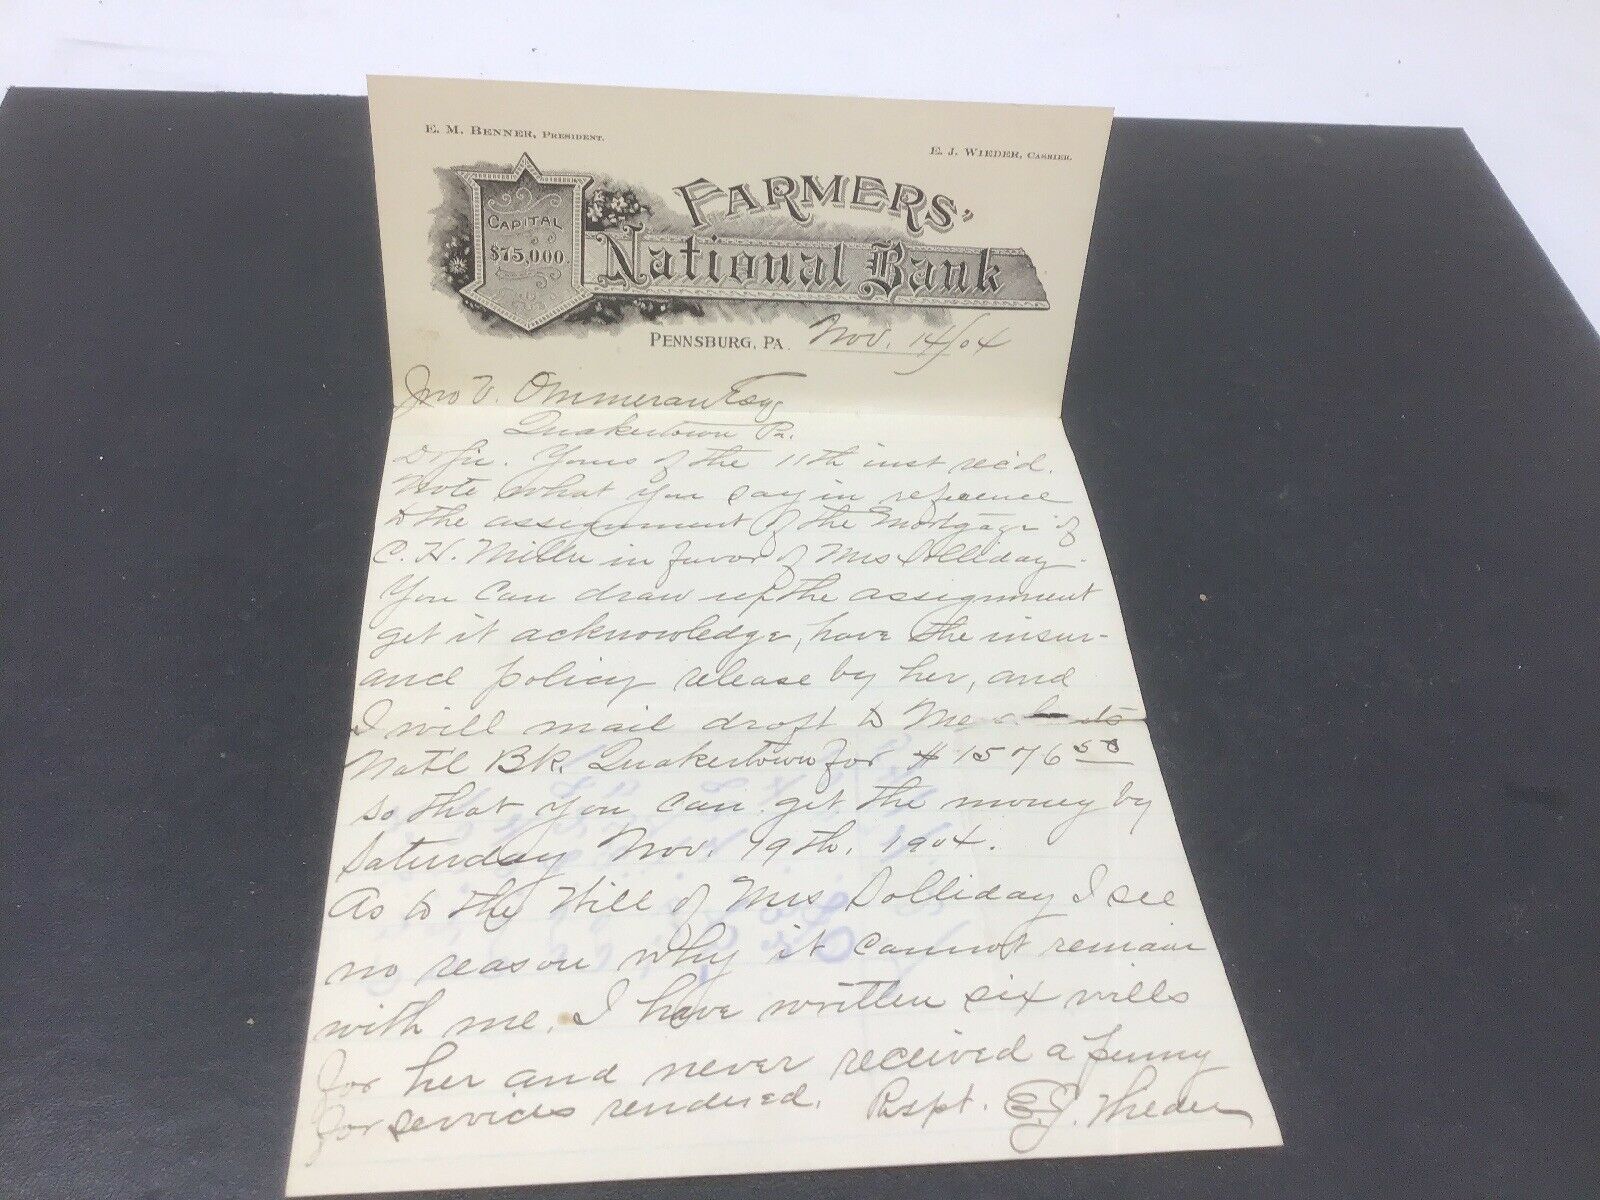 E. M. BENNER, PRESIDENT.
E. J. WIEDER, CASHIER.
CAPITAL
$75,000.
FARMERS'
National Bank
PENNSBURG, PA. Nov. 14/04
Jno V. Ommeran Esq
Quakertown Pa.
D Sir. Yours of the 11th inst rec'd.
Note what you say in reference
to the assignment of the Mortgage of
C. H. Miller in favor of Mrs Solliday.
You can draw up the assignment
get it acknowledge, have the insur-
ance policy release by her, and
I will mail draft to
Nat'l Bk. Quakertown for $1576 50
so that you can get the money by
Saturday Nov. 19th, 1904.
As to the Will of Mrs Solliday I see
no reason why it cannot remain
with me. I have written six wills
for her and never received a penny
for services rendered. Respt. E. J. Wieder